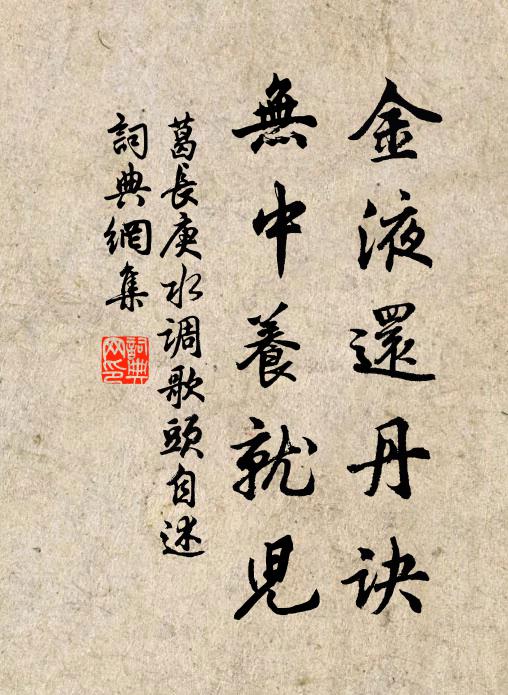 金液還丹訣
無中養就兒
葛長庚水调歌頭自述
詞典網集
詞典網印